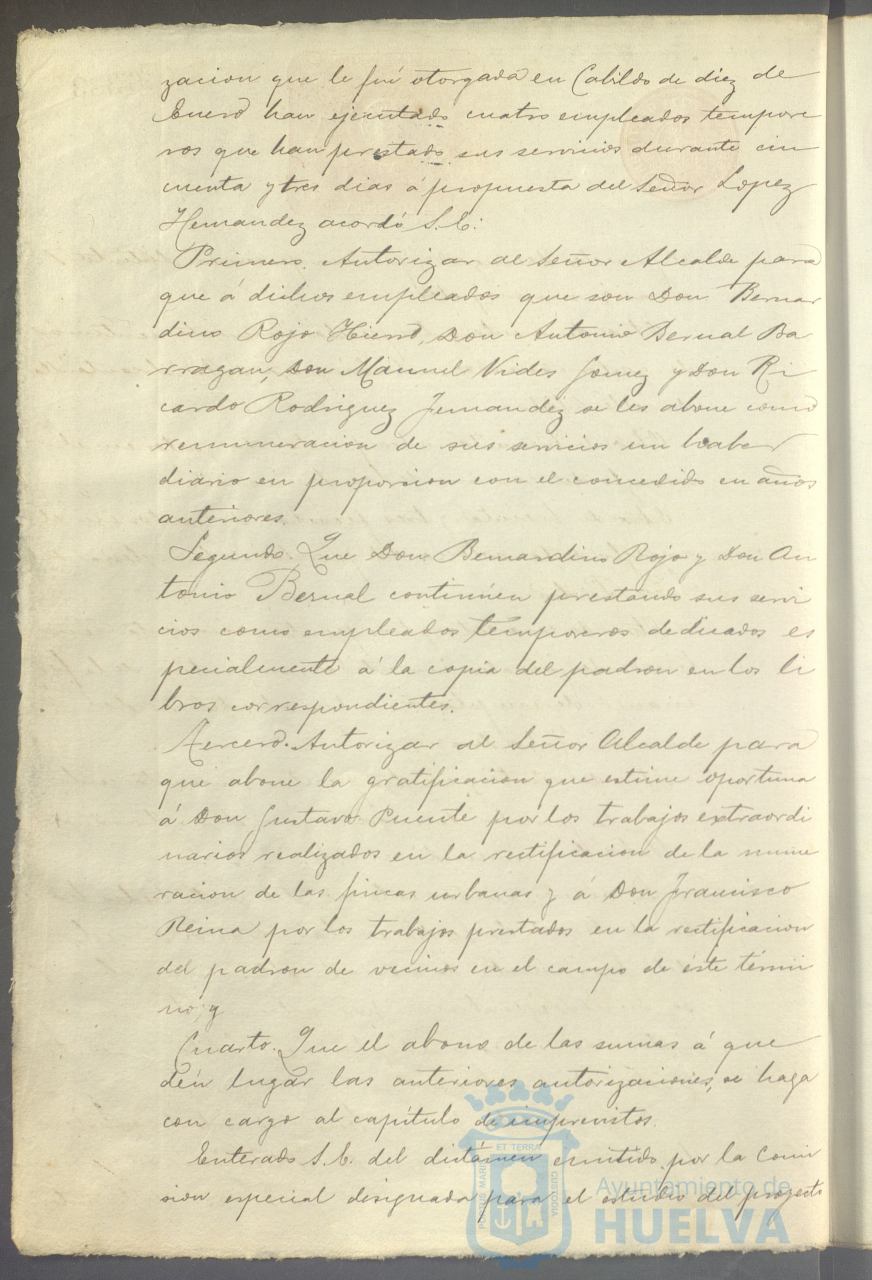 zacion que le fué otorgada en Cabildo de diez de
Enero han ejecutado cuatro empleados tempore
ros que han prestado sus servicios durante cin
cuenta y tres dias á propuesta del Señor Lopez
Hernandez acordó S.E:
Primero. Autorizar al Señor Alcalde para
que á dichos empleados que son Don Bernar
dino Rojo Hierro, Don Antonio Bernal Ba
rragan, Don Manuel Vides Gomez y Don Ri
cardo Rodriguez Fernandez se les abone como
remuneracion de sus servicios un haber
diario en proporcion con el concedido en años
anteriores.
Segundo. Que Don Bernardino Rojo y Don An
tonio Bernal continúen prestando sus servi
cios como empleados temporeros dedicados es
pecialmente á la copia del padron en los li
bros correspondientes.
Tercero. Autorizar al Señor Alcalde para
que abone la gratificacion que estime oportuna
á Don Gustavo Puente por los trabajos extraordi
narios realizados en la rectificacion de la nume
racion de las fincas urbanas y á Don Francisco
Reina por los trabajos prestados en la rectificacion
del padron de vecinos en el campo de éste térmi
no; y
Cuarto. Que el abono de las sumas á que
dén lugar las anteriores autorizaciones, se haga
con cargo al capítulo de imprevistos.
Enterado S.E. del dictámen emitido por la Comi
sion especial designada para el estudio del proyecto
PORTUS MARIS ET TERRAE CUSTODIA
Ayuntamiento de
HUELVA